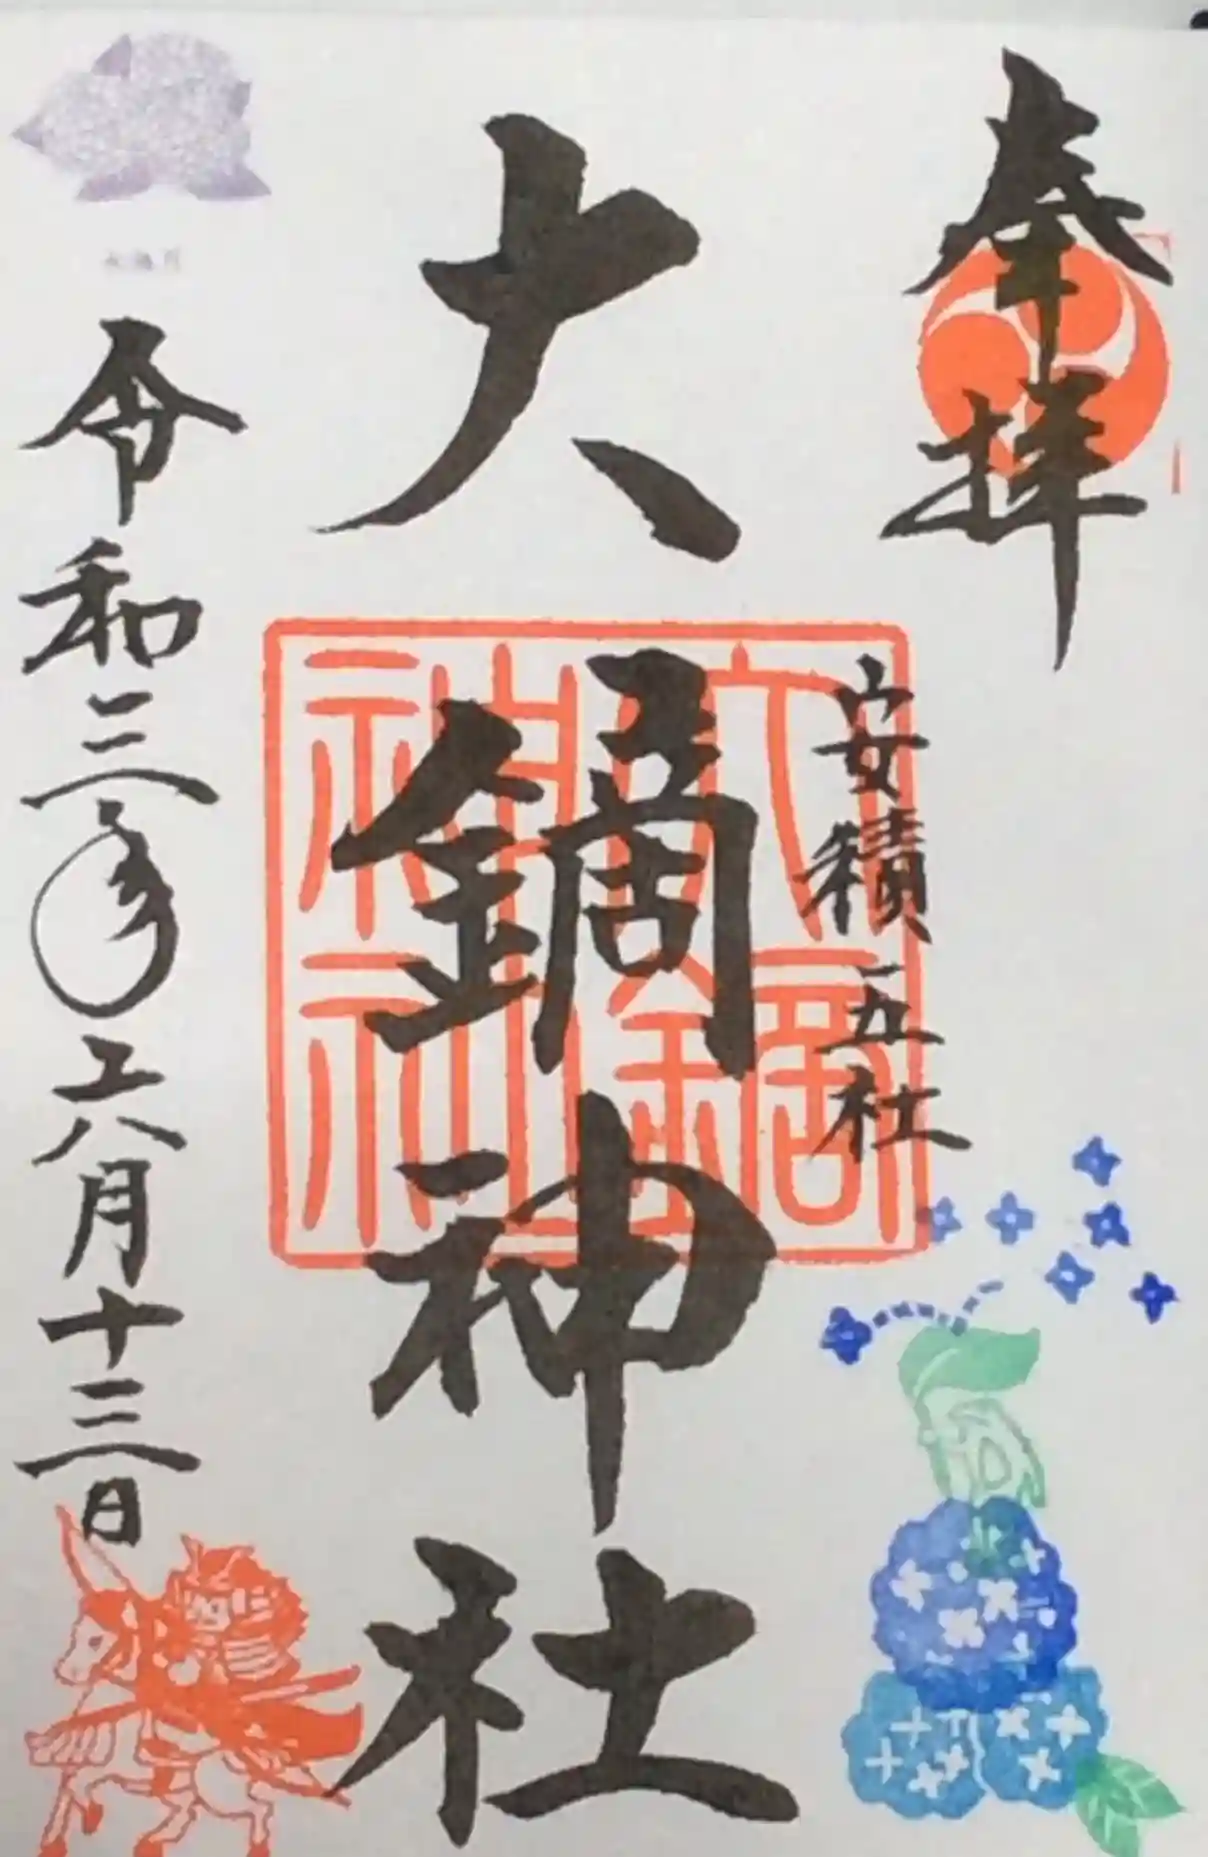 奉拝
安積五社
大鏑神社
大鏑
神社
令和三年六月十三日